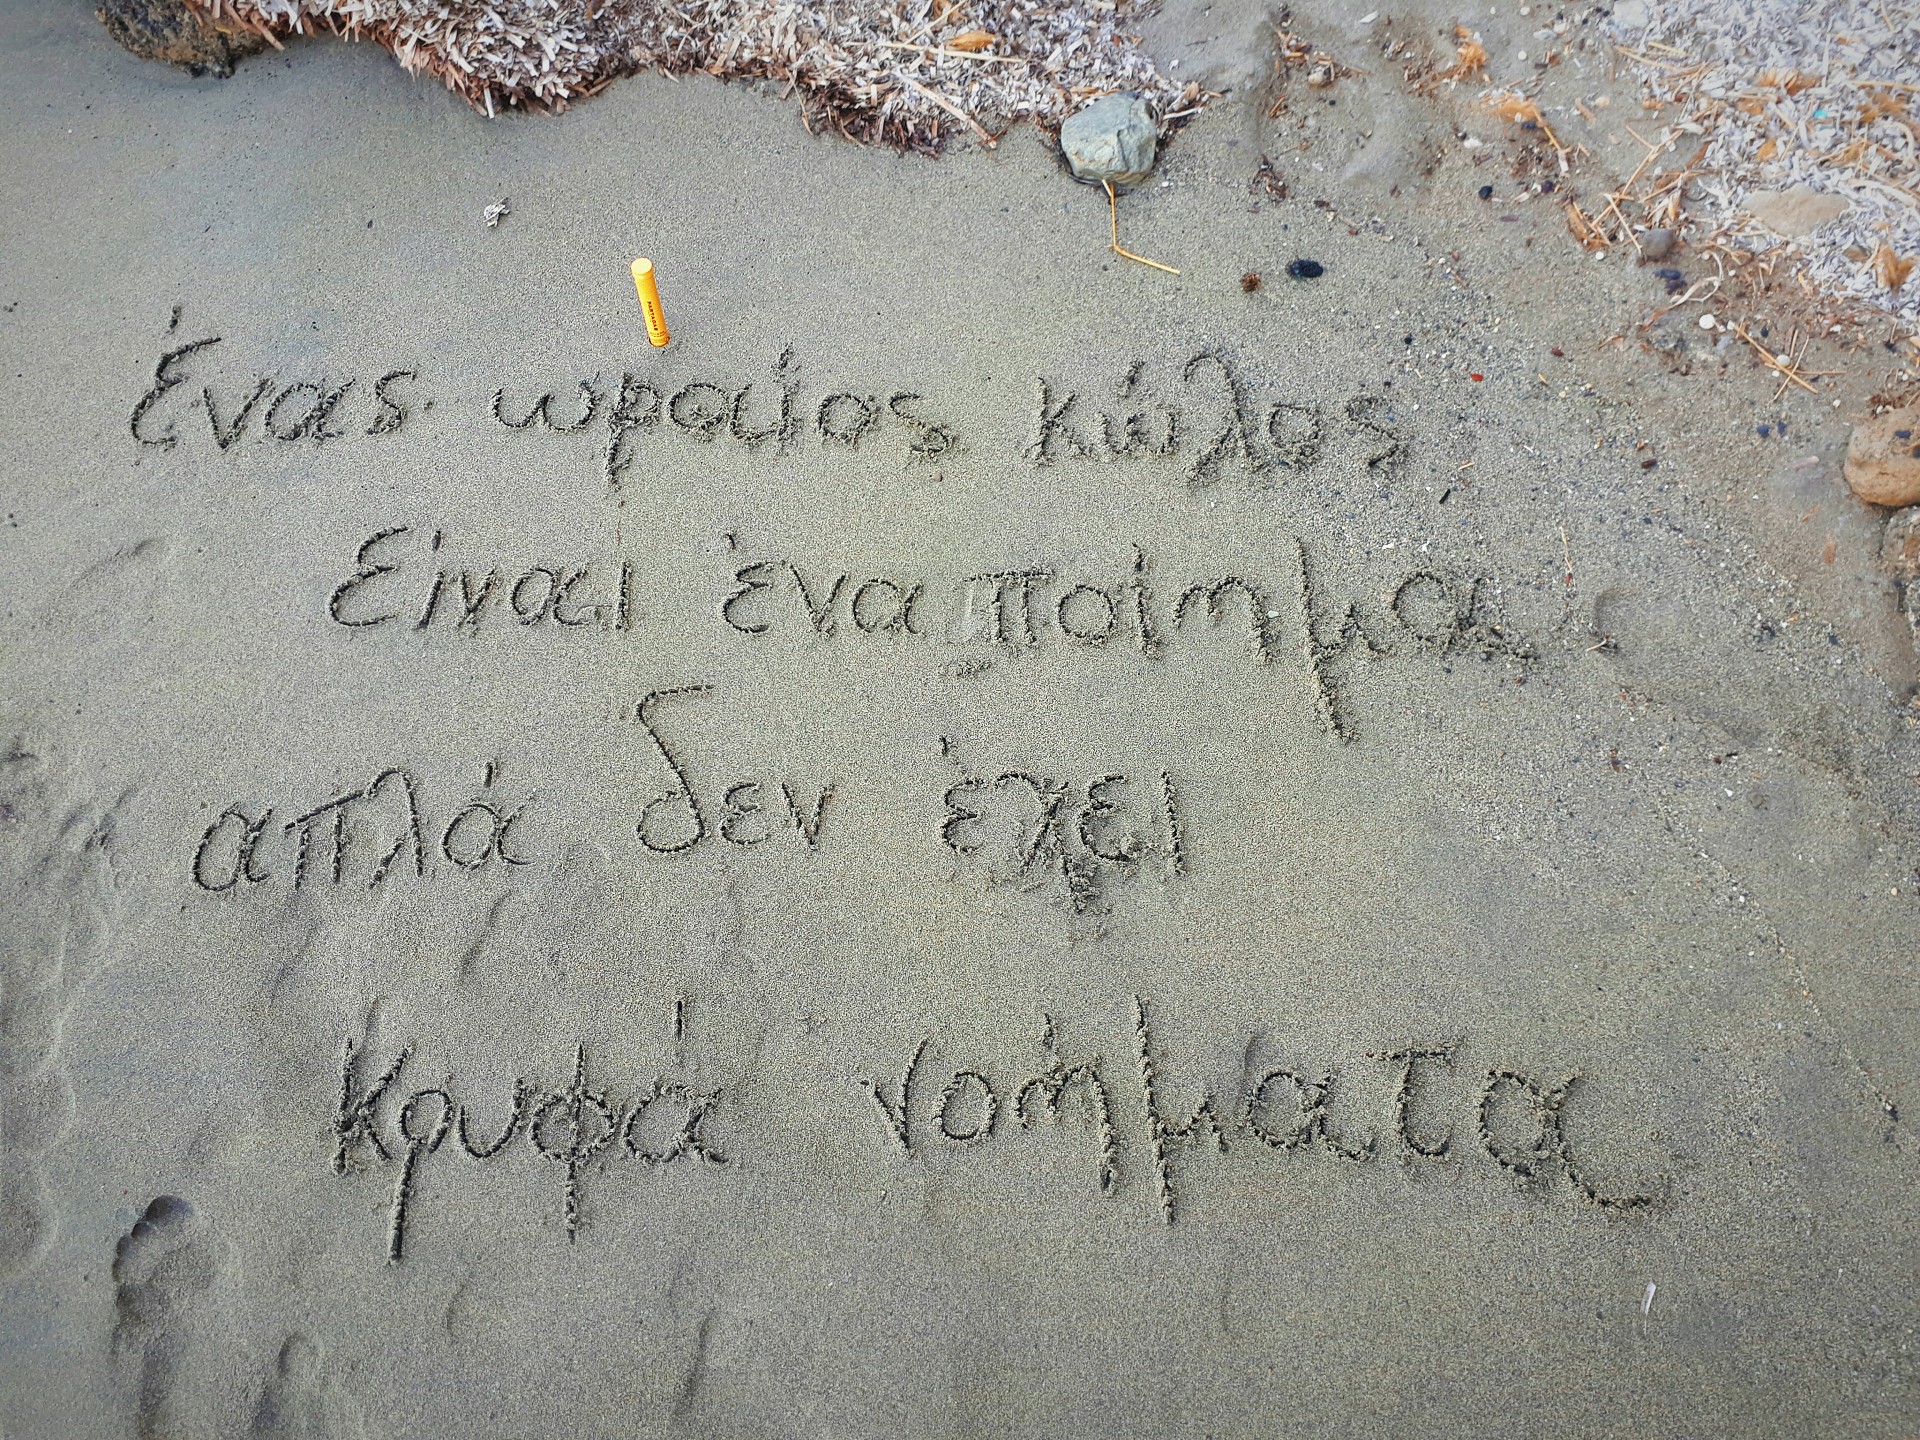 PARTAGAS
ένας ωραίος κώλος
είναι ένα ποίημα
απλά δεν έχει
κρυφά νοήματα